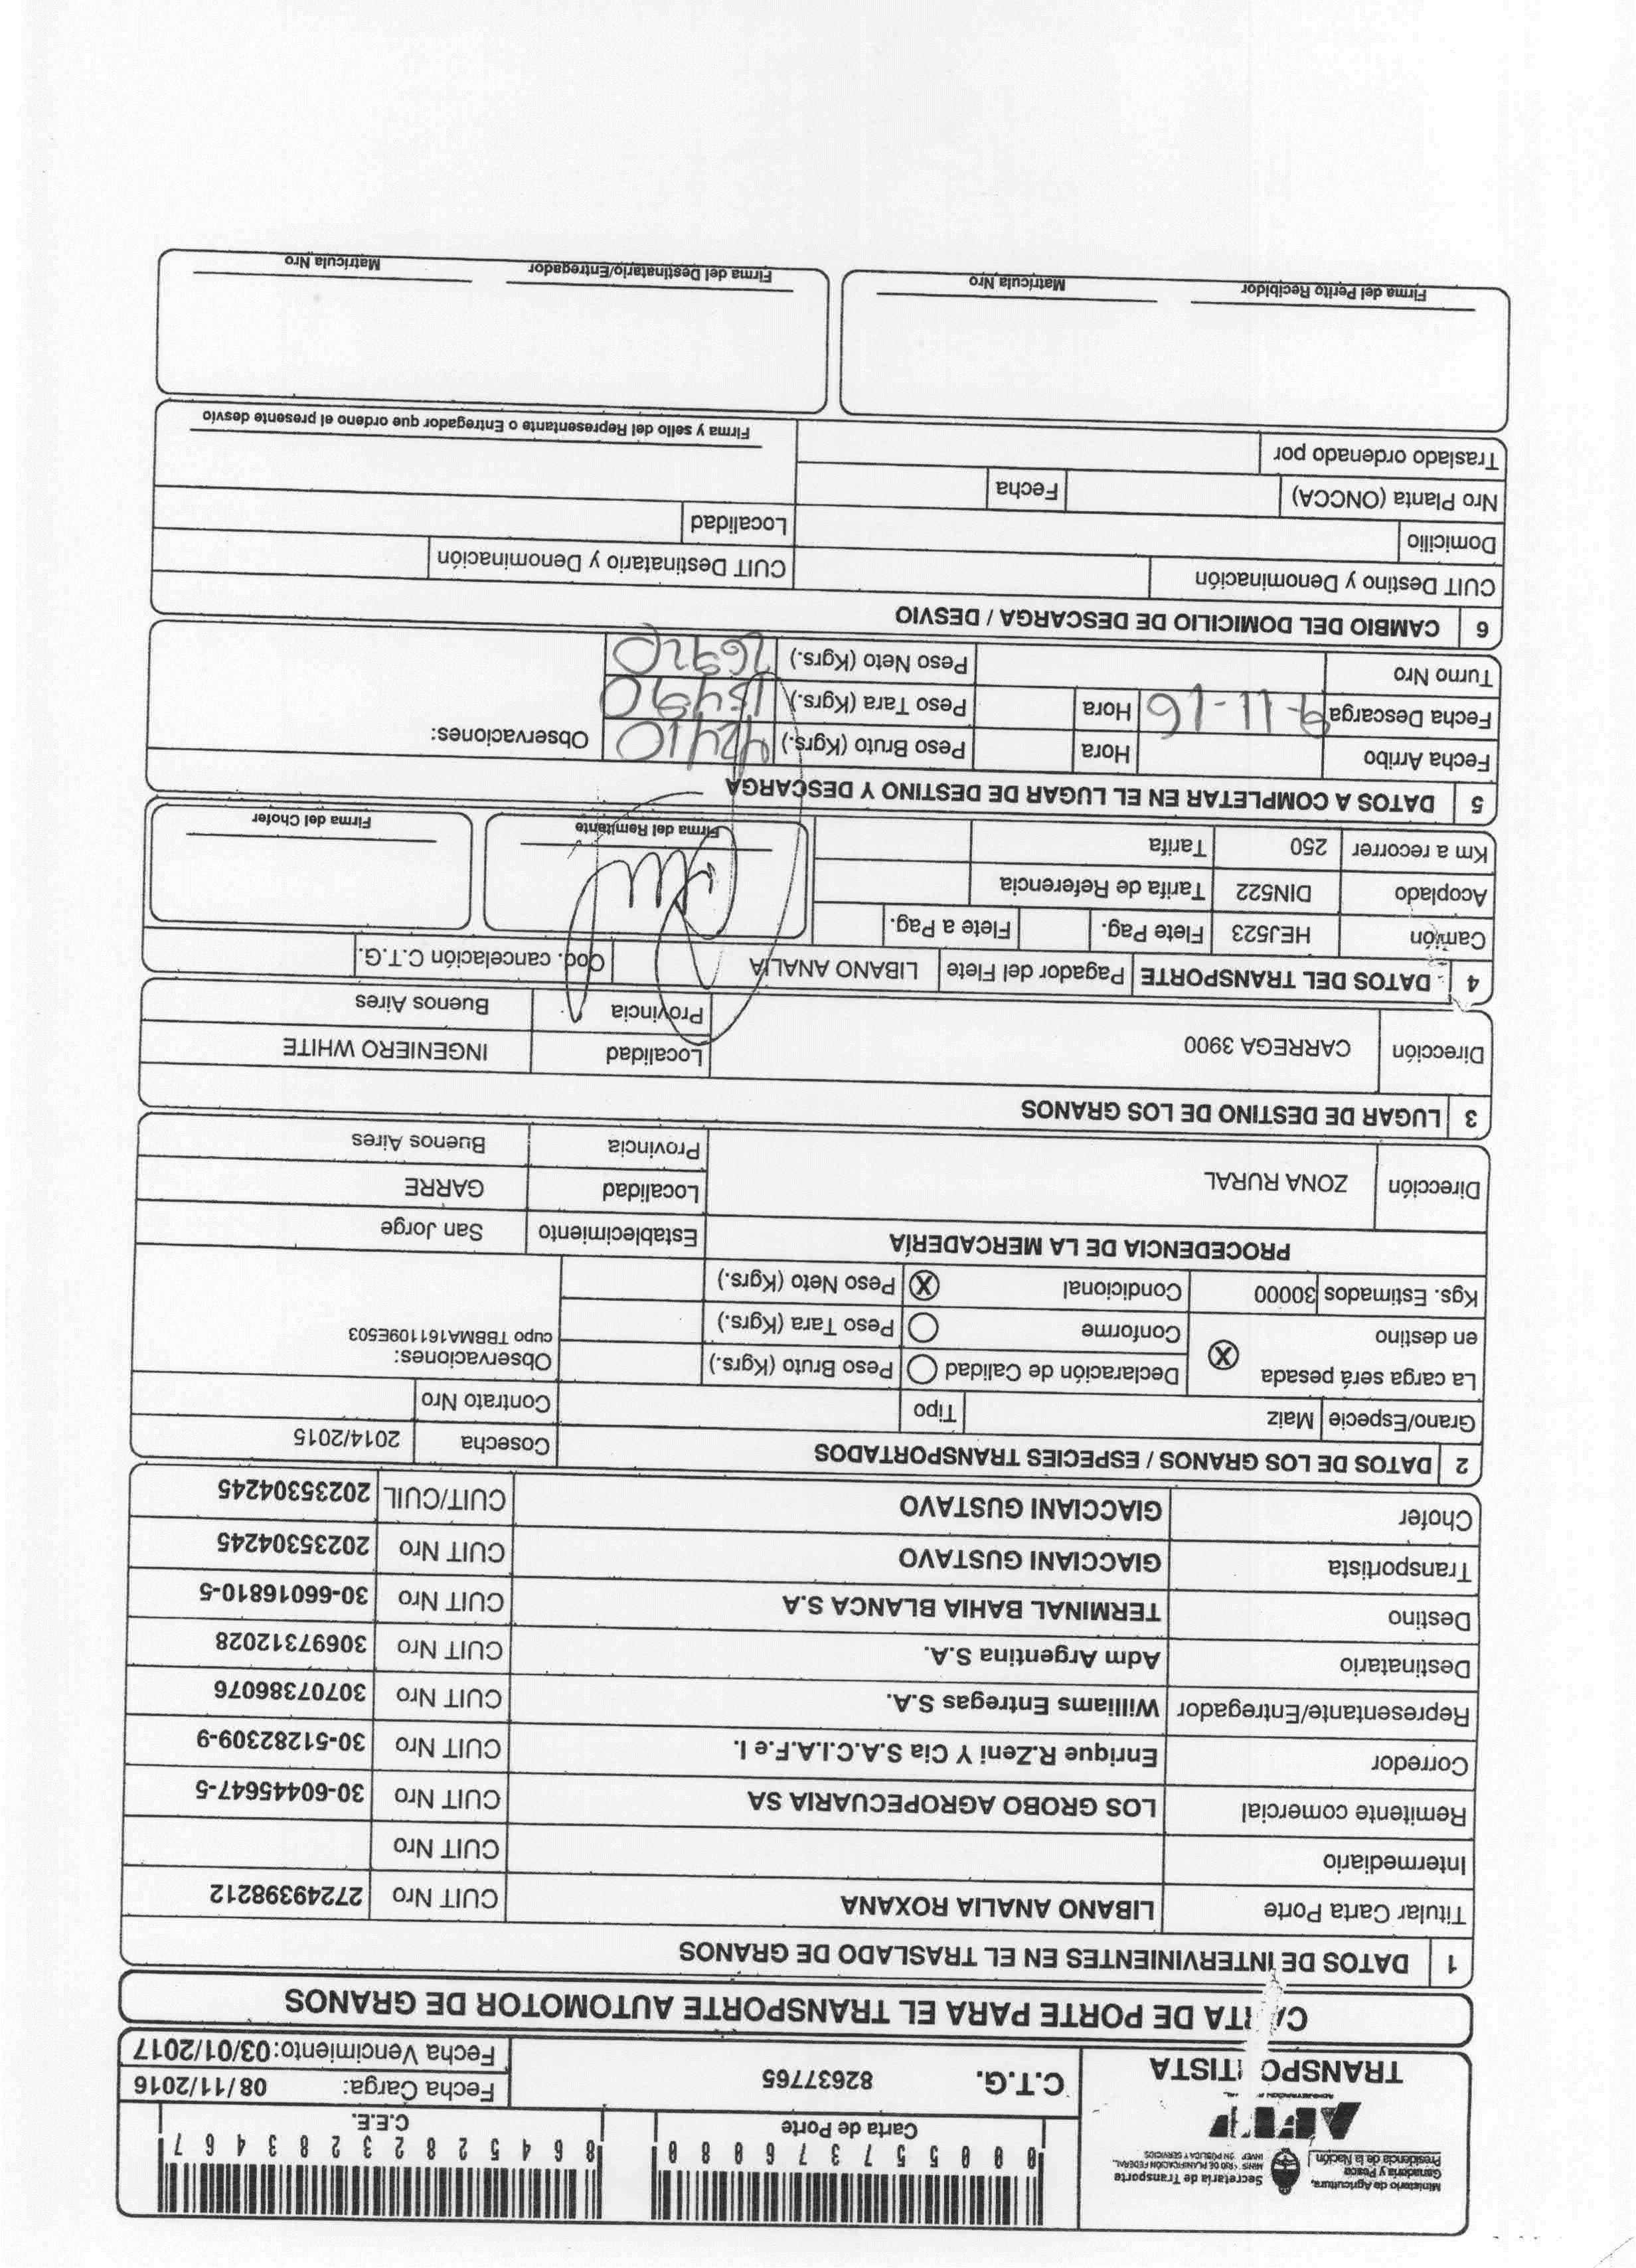 Ministerio de Agricultura,
Ganadería y Pesca
Presidencia de la Nación
Secretaría de Transporte
AFIP
TRANSPO TISTA
000557376080
Carta de Porte
86452823283467
C.E.E.
C.T.G. 82637765
Fecha Carga: 08/11/2016
Fecha Vencimiento: 03/01/2017
CA RTA DE PORTE PARA EL TRANSPORTE AUTOMOTOR DE GRANOS
1 DATOS DE INTERVINIENTES EN EL TRASLADO DE GRANOS
Titular Carta Porte LIBANO ANALIA ROXANA CUIT Nro 27249398212
Intermediario CUIT Nro
Remitente comercial LOS GROBO AGROPECUARIA SA CUIT Nro 30-60445647-5
Corredor Enrique R.Zeni Y Cia S.A.C.I.A.F.e I. CUIT Nro 30-51282309-9
Representante/Entregador Williams Entregas S.A. CUIT Nro 30707386076
Destinatario Adm Argentina S.A. CUIT Nro 30697312028
Destino TERMINAL BAHIA BLANCA S.A CUIT Nro 30-66016810-5
Transportista GIACCIANI GUSTAVO CUIT Nro 20235304245
Chofer GIACCIANI GUSTAVO CUIT/CUIL 20235304245
2 DATOS DE LOS GRANOS / ESPECIES TRANSPORTADOS Cosecha 2014/2015
Grano/Especie Maiz Tipo Contrato Nro
La carga será pesada en destino X Declaración de Calidad Peso Bruto (Kgrs.) Observaciones:
Conforme Peso Tara (Kgrs.) cupo TBBMA161109E503
Kgs. Estimados 30000 Condicional X Peso Neto (Kgrs.)
PROCEDENCIA DE LA MERCADERÍA Establecimiento San Jorge
Dirección ZONA RURAL Localidad GARRE
Provincia Buenos Aires
3 LUGAR DE DESTINO DE LOS GRANOS
Dirección CARREGA 3900 Localidad INGENIERO WHITE
Provincia Buenos Aires
4 DATOS DEL TRANSPORTE Pagador del Flete LIBANO ANALIA Cod. cancelación C.T.G.
Camión HEJ523 Flete Pag. Flete a Pag.
Acoplado DIN522 Tarifa de Referencia
Km a recorrer 250 Tarifa
Firma del Remitente Firma del Chofer
5 DATOS A COMPLETAR EN EL LUGAR DE DESTINO Y DESCARGA
Fecha Arribo Hora Peso Bruto (Kgrs.) 42410 Observaciones:
Fecha Descarga 9-11-16 Hora Peso Tara (Kgrs.) 15490
Turno Nro Peso Neto (Kgrs.) 26920
6 CAMBIO DEL DOMICILIO DE DESCARGA / DESVIO
CUIT Destino y Denominación CUIT Destinatario y Denominación
Domicilio Localidad
Nro Planta (ONCCA) Fecha
Traslado ordenado por Firma y sello del Representante o Entregador que ordeno el presente desvío
Firma del Perito Recibidor Matrícula Nro Firma del Destinatario/Entregador Matrícula Nro